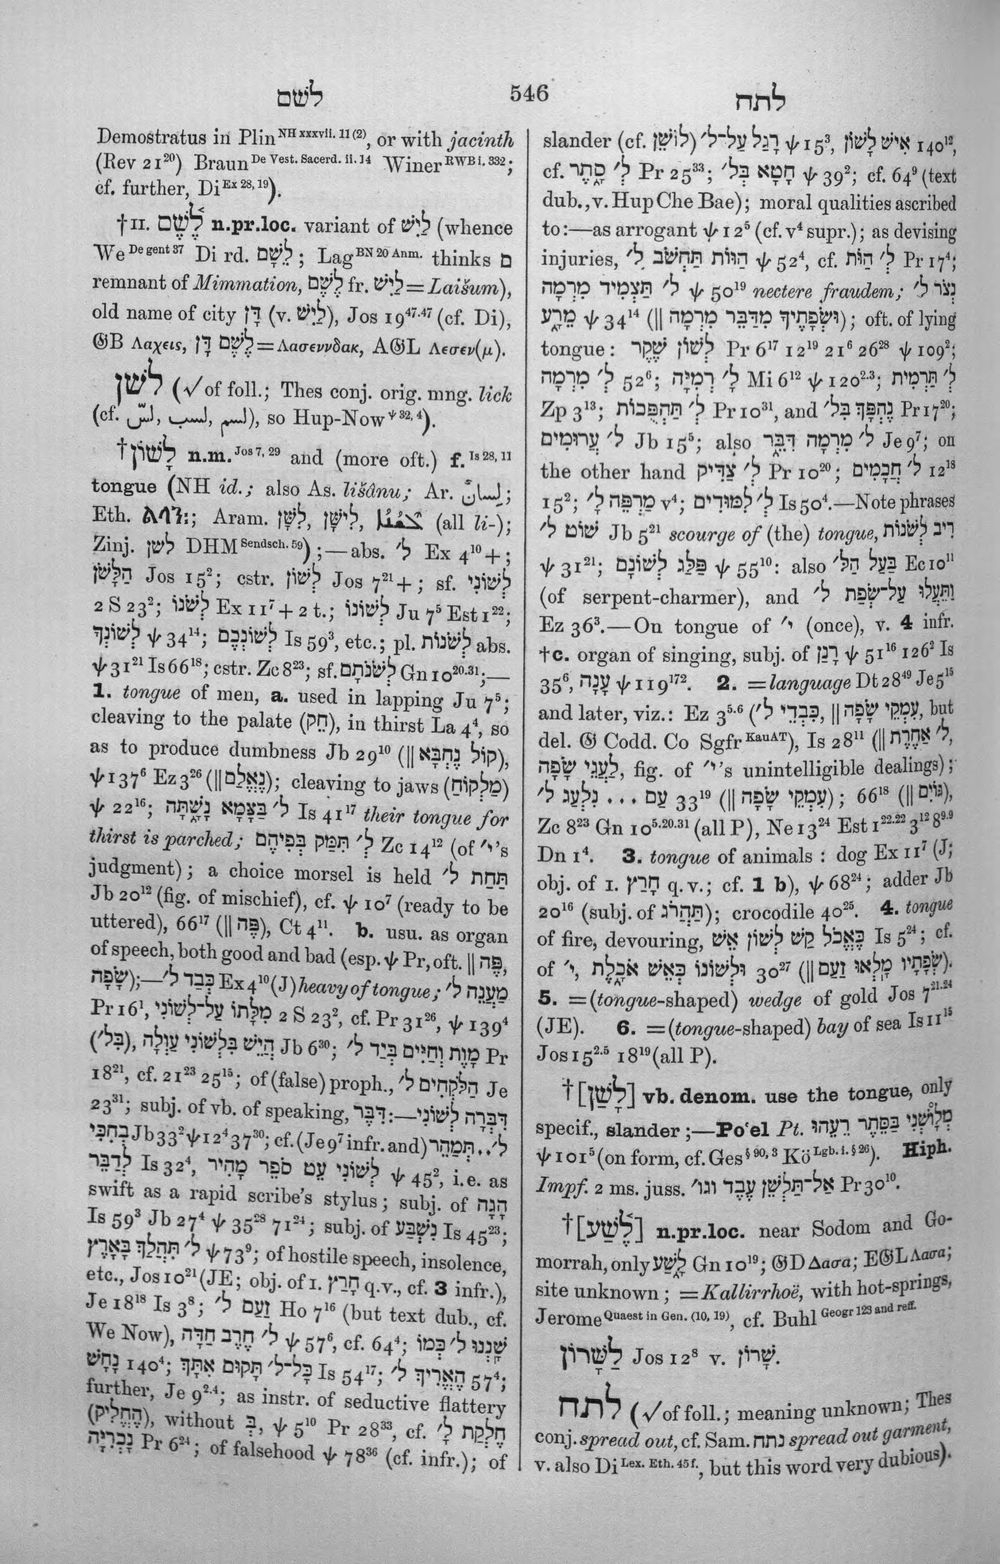 לשׁם
546
לתח
Demostratus in Plin NH xxxvii. 11 (2), or with jacinth
(Rev 21 20) Braun De Vest. Sacerd. ii. 14 Winer RWB i. 332;
cf. further, Di Ex 28, 19).
†II. לֶ֫שֶׁם n.pr.loc. variant of לַיִשׁ (whence
We De gent 37 Di rd. לֵשָׁם; Lag BN 20 Anm. thinks ם
remnant of Mimmation, לֶשֶׁם fr. לַיִשׁ = Laišum),
old name of city דָּן (v. לַיִשׁ), Jos 19 47.47 (cf. Di),
𝔊B Λαχεις, לֶשֶׁם דָּן = Λασεννδακ, A𝔊L Λεσεν(μ).
לשׁן (√ of foll.; Thes conj. orig. mng. lick
(cf. لسّ, لسب, لسم), so Hup-Now ψ 32, 4).
†לָשׁוֹן n.m. Jos 7, 29 and (more oft.) f. Is 28, 11
tongue (NH id.; also As. lišânu; Ar. لِسانٌ;
Eth. ልሳን፡; Aram. לִשָּׁן, לִישָׁן, ܠܫܢܐ (all li-);
Zinj. לשן DHM Sendsch. 59);—abs. ל׳ Ex 4 10 +;
הַלָּשֹׁן Jos 15 2; cstr. לְשׁוֹן Jos 7 21 +; sf. לְשׁוֹנִי
2 S 23 2; לְשֹׁנוֹ Ex 11 7 + 2 t.; לְשׁוֹנוֹ Ju 7 5 Est 1 22;
לְשׁוֹנְךָ ψ 34 14; לְשׁוֹנְכֶם Is 59 3, etc.; pl. לְשֹׁנוֹת abs.
ψ 31 21 Is 66 18; cstr. Zc 8 23; sf. לְשֹׁנֹתָם Gn 10 20.31;—
1. tongue of men, a. used in lapping Ju 7 5;
cleaving to the palate (חֵךְ), in thirst La 4 4, so
as to produce dumbness Jb 29 10 (|| קוֹל נֶחְבָּא),
ψ 137 6 Ez 3 26 (|| נֶאֱלַם); cleaving to jaws (מַלְקוֹחַ)
ψ 22 16; ל׳ בַּצָּמָא נָשָׁ֑תָּה Is 41 17 their tongue for
thirst is parched; ל׳ תִּמַּק בְּפִיהֶם Zc 14 12 (of י״'s
judgment); a choice morsel is held תַּחַת ל׳
Jb 20 12 (fig. of mischief), cf. ψ 10 7 (ready to be
uttered), 66 17 (|| פֶּה), Ct 4 11. b. usu. as organ
of speech, both good and bad (esp. ψ Pr, oft. || פֶּה,
שָׂפָה);—כְּבַד ל׳ Ex 4 10 (J) heavy of tongue; מַעֲנֵה ל׳
Pr 16 1, מִלָּתוֹ עַל־לְשׁוֹנִי 2 S 23 2, cf. Pr 31 26, ψ 139 4
(בל׳), הֲיֵשׁ בִּלְשׁוֹנִי עַוְלָה Jb 6 30; מָוֶת וְחַיִּים בְּיַד ל׳ Pr
18 21, cf. 21 23 25 15; of (false) proph., הַלֹּקְחִים ל׳ Je
23 31; subj. of vb. of speaking, דִּבֶּר:—דִּבְּרָה לְשׁוֹנִי
בְחִכִּי Jb 33 2 ψ 12 4 37 30; cf. (Je 9 7 infr. and) ל׳..תְּמַהֵר
לְדַבֵּר Is 32 4, לְשׁוֹנִי עֵט סֹפֵר מָהִיר ψ 45 2, i.e. as
swift as a rapid scribe's stylus; subj. of הָגָה
Is 59 3 Jb 27 4 ψ 35 28 71 24; subj. of נִשְׁבַּע Is 45 23;
ל׳ תִּהֲלַךְ בָּאָרֶץ ψ 73 9; of hostile speech, insolence,
etc., Jos 10 21 (JE; obj. of I. חָרַץ q.v., cf. 3 infr.),
Je 18 18 Is 3 8; זַעַם ל׳ Ho 7 16 (but text dub., cf.
We Now), ל׳ חֶרֶב חַדָּה ψ 57 5, cf. 64 4; שָׁנְנוּ ל׳ כְּמוֹ
נָחָשׁ 140 4; כָּל־ל׳ תָּקוּם אִתָּךְ Is 54 17; הֶאֱרִיךְ ל׳ 57 4;
further, Je 9 2.4; as instr. of seductive flattery
(הֶחֱלִיק), without בְּ, ψ 5 10 Pr 28 33, cf. חֶלְקַת ל׳
נָכְרִיָּה Pr 6 24; of falsehood ψ 78 36 (cf. infr.); of
slander (cf. לוֹשֵׁן) רָגַל עַל־ל׳ ψ 15 3, אִישׁ לָשׁוֹן 140 12,
cf. ל׳ סָ֑תֶר Pr 25 33; חָטָא בְל׳ ψ 39 2; cf. 64 9 (text
dub., v. Hup Che Bae); moral qualities ascribed
to:—as arrogant ψ 12 5 (cf. v 4 supr.); as devising
injuries, הַוּוֹת תַּחְשֹׁב ל׳ ψ 52 4, cf. ל׳ הַוֹּת Pr 17 4;
ל׳ תַּצְמִיד מִרְמָה ψ 50 19 nectere fraudem; נְצֹר ל׳
מֵרָע ψ 34 14 (|| וּשְׂפָתֶיךָ מִדַּבֵּר מִרְמָה); oft. of lying
tongue: לְשׁוֹן שֶׁקֶר Pr 6 17 12 19 21 6 26 28 ψ 109 2;
ל׳ תַּרְמִית ל׳ מִרְמָה 52 6; ל׳ רְמִיָּה Mi 6 12 ψ 120 2.3;
Zp 3 13; ל׳ תַּהְפֻּכוֹת Pr 10 31, and נֶהְפָּךְ בּל׳ Pr 17 20;
ל׳ עֲרוּמִים Jb 15 5; also ל׳ מִרְמָה דִּבֵּר Je 9 7; on
the other hand ל׳ צַדִּיק Pr 10 20; ל׳ חֲכָמִים 12 18
15 2; מַרְפֵּה ל׳ v 4; ל׳ לִמּוּדִים Is 50 4.—Note phrases
שׁוֹט ל׳ Jb 5 21 scourge of (the) tongue, רִיב לְשֹׁנוֹת
ψ 31 21; פַּלַּג לְשׁוֹנָם ψ 55 10: also בַּעַל הַל׳ Ec 10 11
(of serpent-charmer), and וַתֵּעֲלוּ עַל־שְׂפַת ל׳
Ez 36 3.—On tongue of י״ (once), v. 4 infr.
†c. organ of singing, subj. of רָנַן ψ 51 16 126 2 Is
35 6, עָנָה ψ 119 172. 2. = language Dt 28 49 Je 5 15
and later, viz.: Ez 3 5.6 (כִּבְדֵי ל׳, || עִמְקֵי שָׂפָה, but
del. 𝔊 Codd. Co Sgfr KauAT), Is 28 11 (|| ל׳ אַחֶרֶת,
לַעֲגֵי שָׂפָה, fig. of י״'s unintelligible dealings);
נִלְעַג ל׳ ... עַם 33 19 (|| עִמְקֵי שָׂפָה); 66 18 (|| גּוֹיִם),
Zc 8 23 Gn 10 5.20.31 (all P), Ne 13 24 Est 1 22.22 3 12 8 9.9
Dn 1 4. 3. tongue of animals: dog Ex 11 7 (J;
obj. of I. חָרַץ q.v.; cf. 1 b), ψ 68 24; adder Jb
20 16 (subj. of תַּהֲרֹג); crocodile 40 25. 4. tongue
of fire, devouring, כֶּאֱכֹל קַשׁ לְשׁוֹן אֵשׁ Is 5 24; cf.
of י״, וּלְשׁוֹנוֹ כְּאֵשׁ אֹכָ֑לֶת 30 27 (|| שְׂפָתָיו מָלְאוּ זַעַם).
5. = (tongue-shaped) wedge of gold Jos 7 21.24
(JE). 6. = (tongue-shaped) bay of sea Is 11 15
Jos 15 2.5 18 19 (all P).
†[לָשַׁן] vb. denom. use the tongue, only
specif., slander;—Po‘el Pt. מְלָֽוֹשְׁנִי בַסֵּתֶר רֵעֵהוּ
ψ 101 5 (on form, cf. Ges § 90, 3 Kö Lgb. i. § 26). Hiph.
Impf. 2 ms. juss. אַל־תַּלְשֵׁן עֶבֶד וגו׳ Pr 30 10.
†[לֶ֫שַׁע] n.pr.loc. near Sodom and Go-
morrah, only לָ֑שַׁע Gn 10 19; 𝔊D Δασα; E𝔊L Λασα;
site unknown; = Kallirrhoë, with hot-springs,
Jerome Quaest in Gen. (10, 19), cf. Buhl Geogr 123 and reff.
לַשָּׁרוֹן Jos 12 8 v. שָׁרוֹן.
לתח (√ of foll.; meaning unknown; Thes
conj. spread out, cf. Sam. נתח spread out garment,
v. also Di Lex. Eth. 45 f., but this word very dubious).